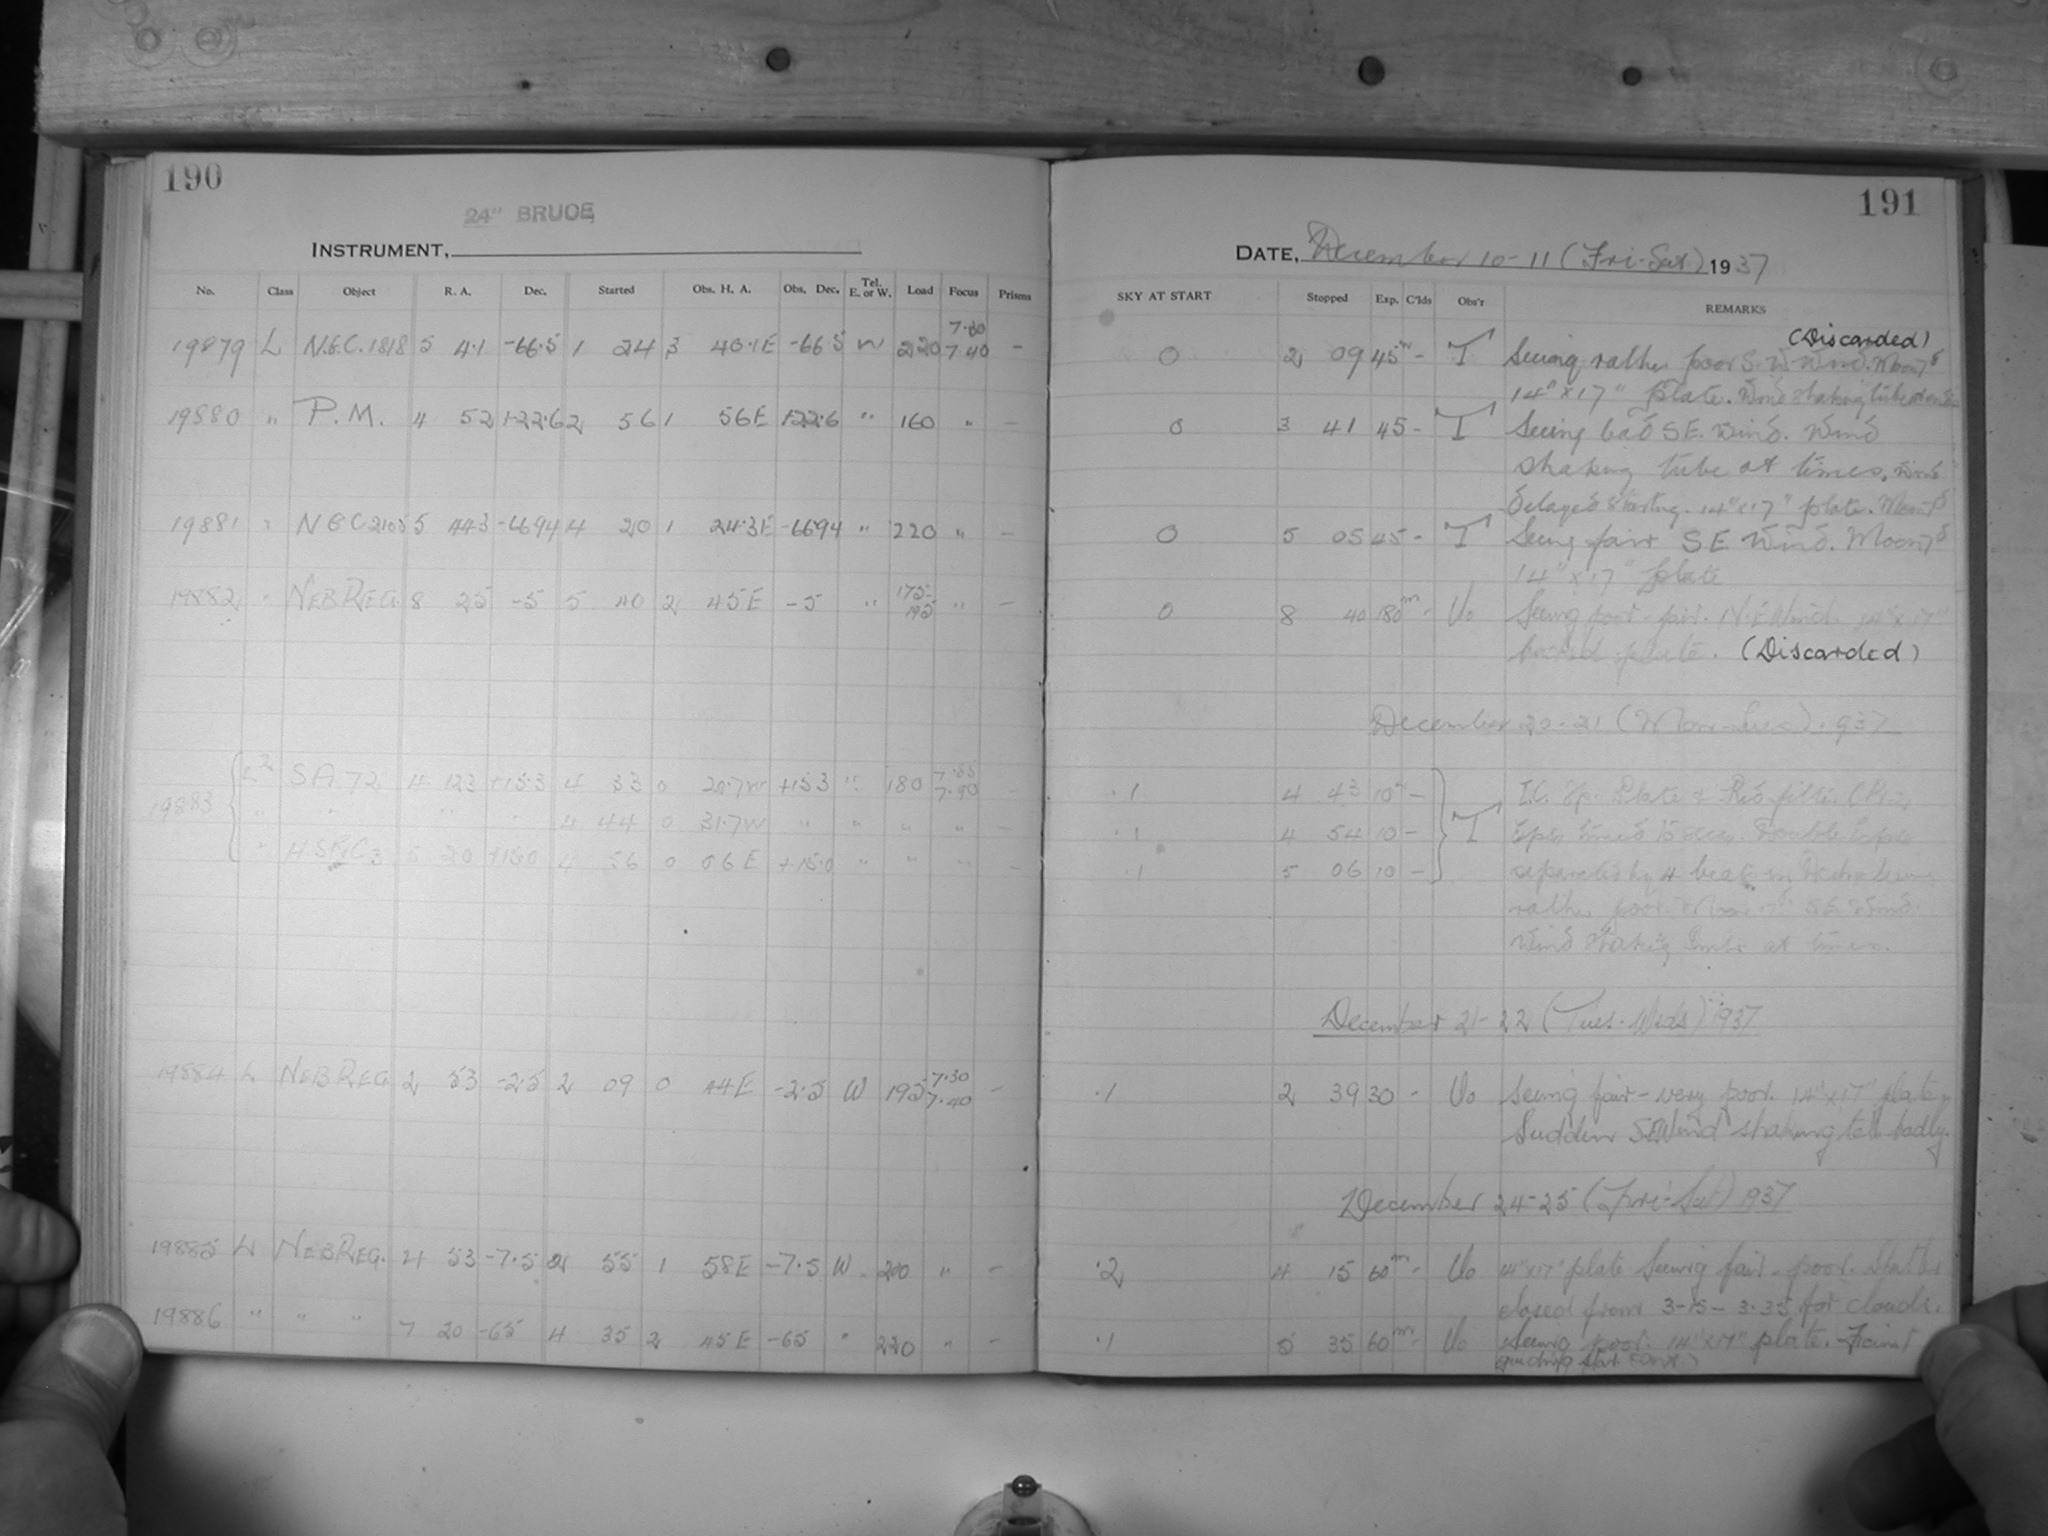 190
24" BRUCE
INSTRUMENT,
No. Class Object R. A. Dec. Started Obs. H. A. Obs. Dec. Tel. E. or W. Load Focus Prisms
7.30
19879 L N.G.C. 1818 5 4.1 -66.5 1 24 3 40.1E -66.5 W 220 7.40 -
19880 " P.M. 4 52 +22.6 2 56 1 56E +22.6 " 160 " -
19881 " NGC 2105 5 44.3 -66 94 4 20 1 24.3E -66 94 " 220 " -
19882 " NEB REG. 8 25 -5 5 40 2 45E -5 " 175- 195 " -
19883 SA 72 4 12.3 +15.3 4 33 0 20.7W +15.3 " 180 7.90 -
" " " " 4 44 0 31.7W " " " " -
" 5 20 +15.0 4 56 0 06E +15.0 " " " -
19884 L NEB REG 2 53 -2.5 2 09 0 44E -2.5 W 195 7.30 7.40 -
19885 L NEB REG. 4 53 -7.5 2 55 1 58E -7.5 W 200 " -
19886 " " " 7 20 -65 4 35 2 45E -65 " 220 " -
191
DATE, December 10-11 (Fri-Sat) 1937
SKY AT START Stopped Exp. C'lds Obs'r REMARKS
(Discarded)
0 2 09 45m - T Seeing rather poor S.W Wind. Moon 7d
14" x 17" plate. Wind shaking tube
0 3 41 45 - T Seeing bad SE. wind. Wind
shaking tube at times, wind
delayed starting. 14" x 17" plate. Moon 7d
0 5 05 45 - T Seeing fair SE Wind. Moon 7d
14" x 17" plate
0 8 40 180m - Uo Seeing poor-fair. N.E Wind. 14" x 17"
backed plate. (Discarded)
December 20-21 (Mon-Tues) 1937
.1 4 43 10m - T I.C. Sp. Plate & Red filter
.1 4 54 10 -
.1 5 06 10 - separated by 4 beats in
rather poor. Moon SE Wind.
Wind shaking tube at times.
December 21-22 (Tues-Weds) 1937
.1 2 39 30 - Uo Seeing fair-very poor. 14" x 17" plate
Sudden S.E Wind shaking tel. badly.
December 24-25 (Fri-Sat) 1937
.2 4 15 60m - Uo 14" x 17" plate Seeing fair-poor. Shutter
closed from 3-15 - 3.35 for clouds.
.1 5 35 60m - Uo Seeing poor. 14" x 17" plate. Faint
guiding star